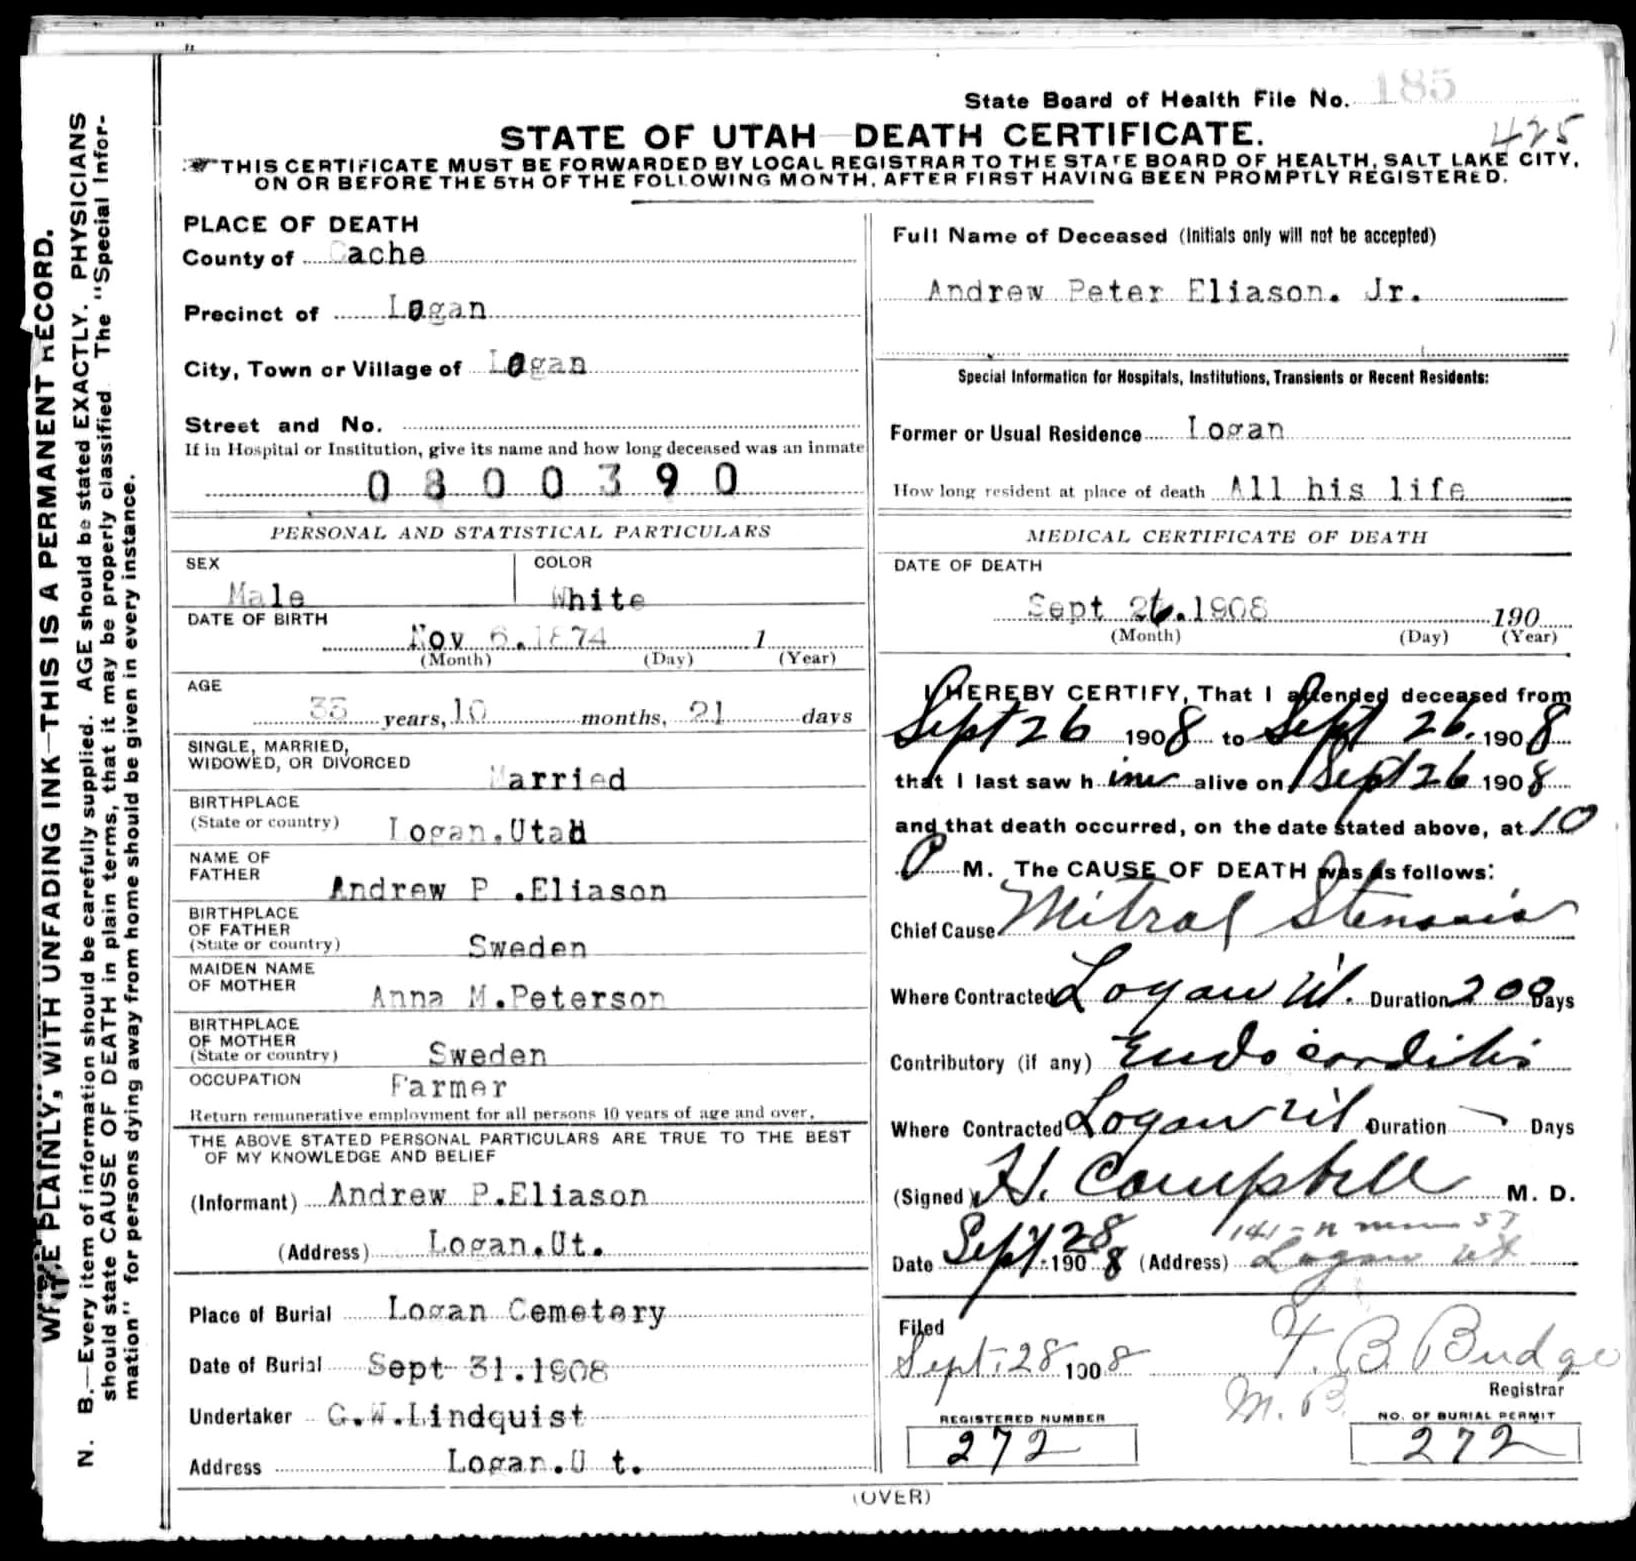 State Board of Health File No. 185
STATE OF UTAH—DEATH CERTIFICATE.
425
THIS CERTIFICATE MUST BE FORWARDED BY LOCAL REGISTRAR TO THE STATE BOARD OF HEALTH, SALT LAKE CITY,
ON OR BEFORE THE 5TH OF THE FOLLOWING MONTH, AFTER FIRST HAVING BEEN PROMPTLY REGISTERED.
WRITE PLAINLY, WITH UNFADING INK—THIS IS A PERMANENT RECORD.
N. B.—Every item of information should be carefully supplied. AGE should be stated EXACTLY. PHYSICIANS
should state CAUSE OF DEATH in plain terms, that it may be properly classified. The "Special Infor-
mation" for persons dying away from home should be given in every instance.
PLACE OF DEATH
County of Cache
Precinct of Logan
City, Town or Village of Logan
Street and No.
If in Hospital or Institution, give its name and how long deceased was an inmate
0 8 0 0 3 9 0
PERSONAL AND STATISTICAL PARTICULARS
SEX COLOR
Male White
DATE OF BIRTH
Nov 6.1874 1
(Month) (Day) (Year)
AGE
33 years, 10 months, 21 days
SINGLE, MARRIED,
WIDOWED, OR DIVORCED
Married
BIRTHPLACE
(State or country) Logan.Utah
NAME OF
FATHER
Andrew P .Eliason
BIRTHPLACE
OF FATHER
(State or country) Sweden
MAIDEN NAME
OF MOTHER
Anna M.Peterson
BIRTHPLACE
OF MOTHER
(State or country) Sweden
OCCUPATION Farmer
Return remunerative employment for all persons 10 years of age and over.
THE ABOVE STATED PERSONAL PARTICULARS ARE TRUE TO THE BEST
OF MY KNOWLEDGE AND BELIEF
(Informant) Andrew P.Eliason
(Address) Logan.Ut.
Place of Burial Logan Cemetery
Date of Burial Sept 31.1908
Undertaker G.W.Lindquist
Address Logan.U t.
Full Name of Deceased (Initials only will not be accepted)
Andrew Peter Eliason. Jr.
Special Information for Hospitals, Institutions, Transients or Recent Residents:
Former or Usual Residence Logan
How long resident at place of death All his life
MEDICAL CERTIFICATE OF DEATH
DATE OF DEATH
Sept 26.1908 190
(Month) (Day) (Year)
I HEREBY CERTIFY, That I attended deceased from
Sept 26 1908 to Sept 26. 1908
that I last saw him alive on Sept 26 1908
and that death occurred, on the date stated above, at 10
P M. The CAUSE OF DEATH was as follows:
Chief Cause Mitral Stenosis
Where Contracted Logan Ut. Duration 200 Days
Contributory (if any) Endocarditis
Where Contracted Logan Ut Duration Days
(Signed) H. Campbell M. D.
141 - N main ST
Date Sept 28 1908 (Address) Logan Ut
Filed
Sept. 28 1908 F. B. Budge
M. B. Registrar
REGISTERED NUMBER NO. OF BURIAL PERMIT
272 272
(OVER)